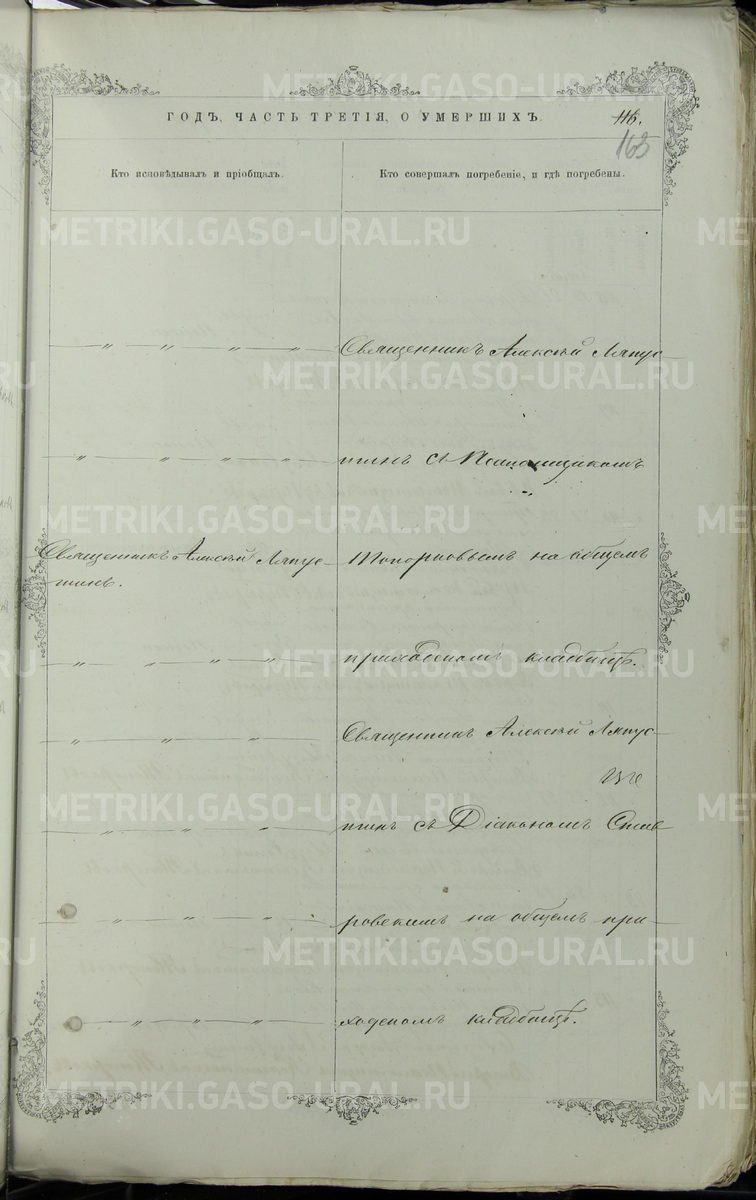 ГОДЪ, ЧАСТЬ ТРЕТІЯ, О УМЕРШИХЪ.
116.
163
Кто исповѣдывалъ и пріобщалъ.
Кто совершалъ погребеніе, и гдѣ погребены.
Священникъ Алексій Ляпус-
тинъ съ Псаломщикомъ
Священникъ Алексій Ляпус-
тинъ.
Топорковымъ на общемъ
приходскомъ кладбищѣ.
Священникъ Алексій Ляпус-
тинъ съ Діакономъ Став
ровскимъ на общемъ при-
ходскомъ кладбищѣ.
METRIKI.GASO-URAL.RU